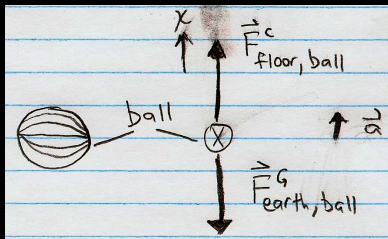 x
F^c floor, ball
ball
a
F^G earth, ball